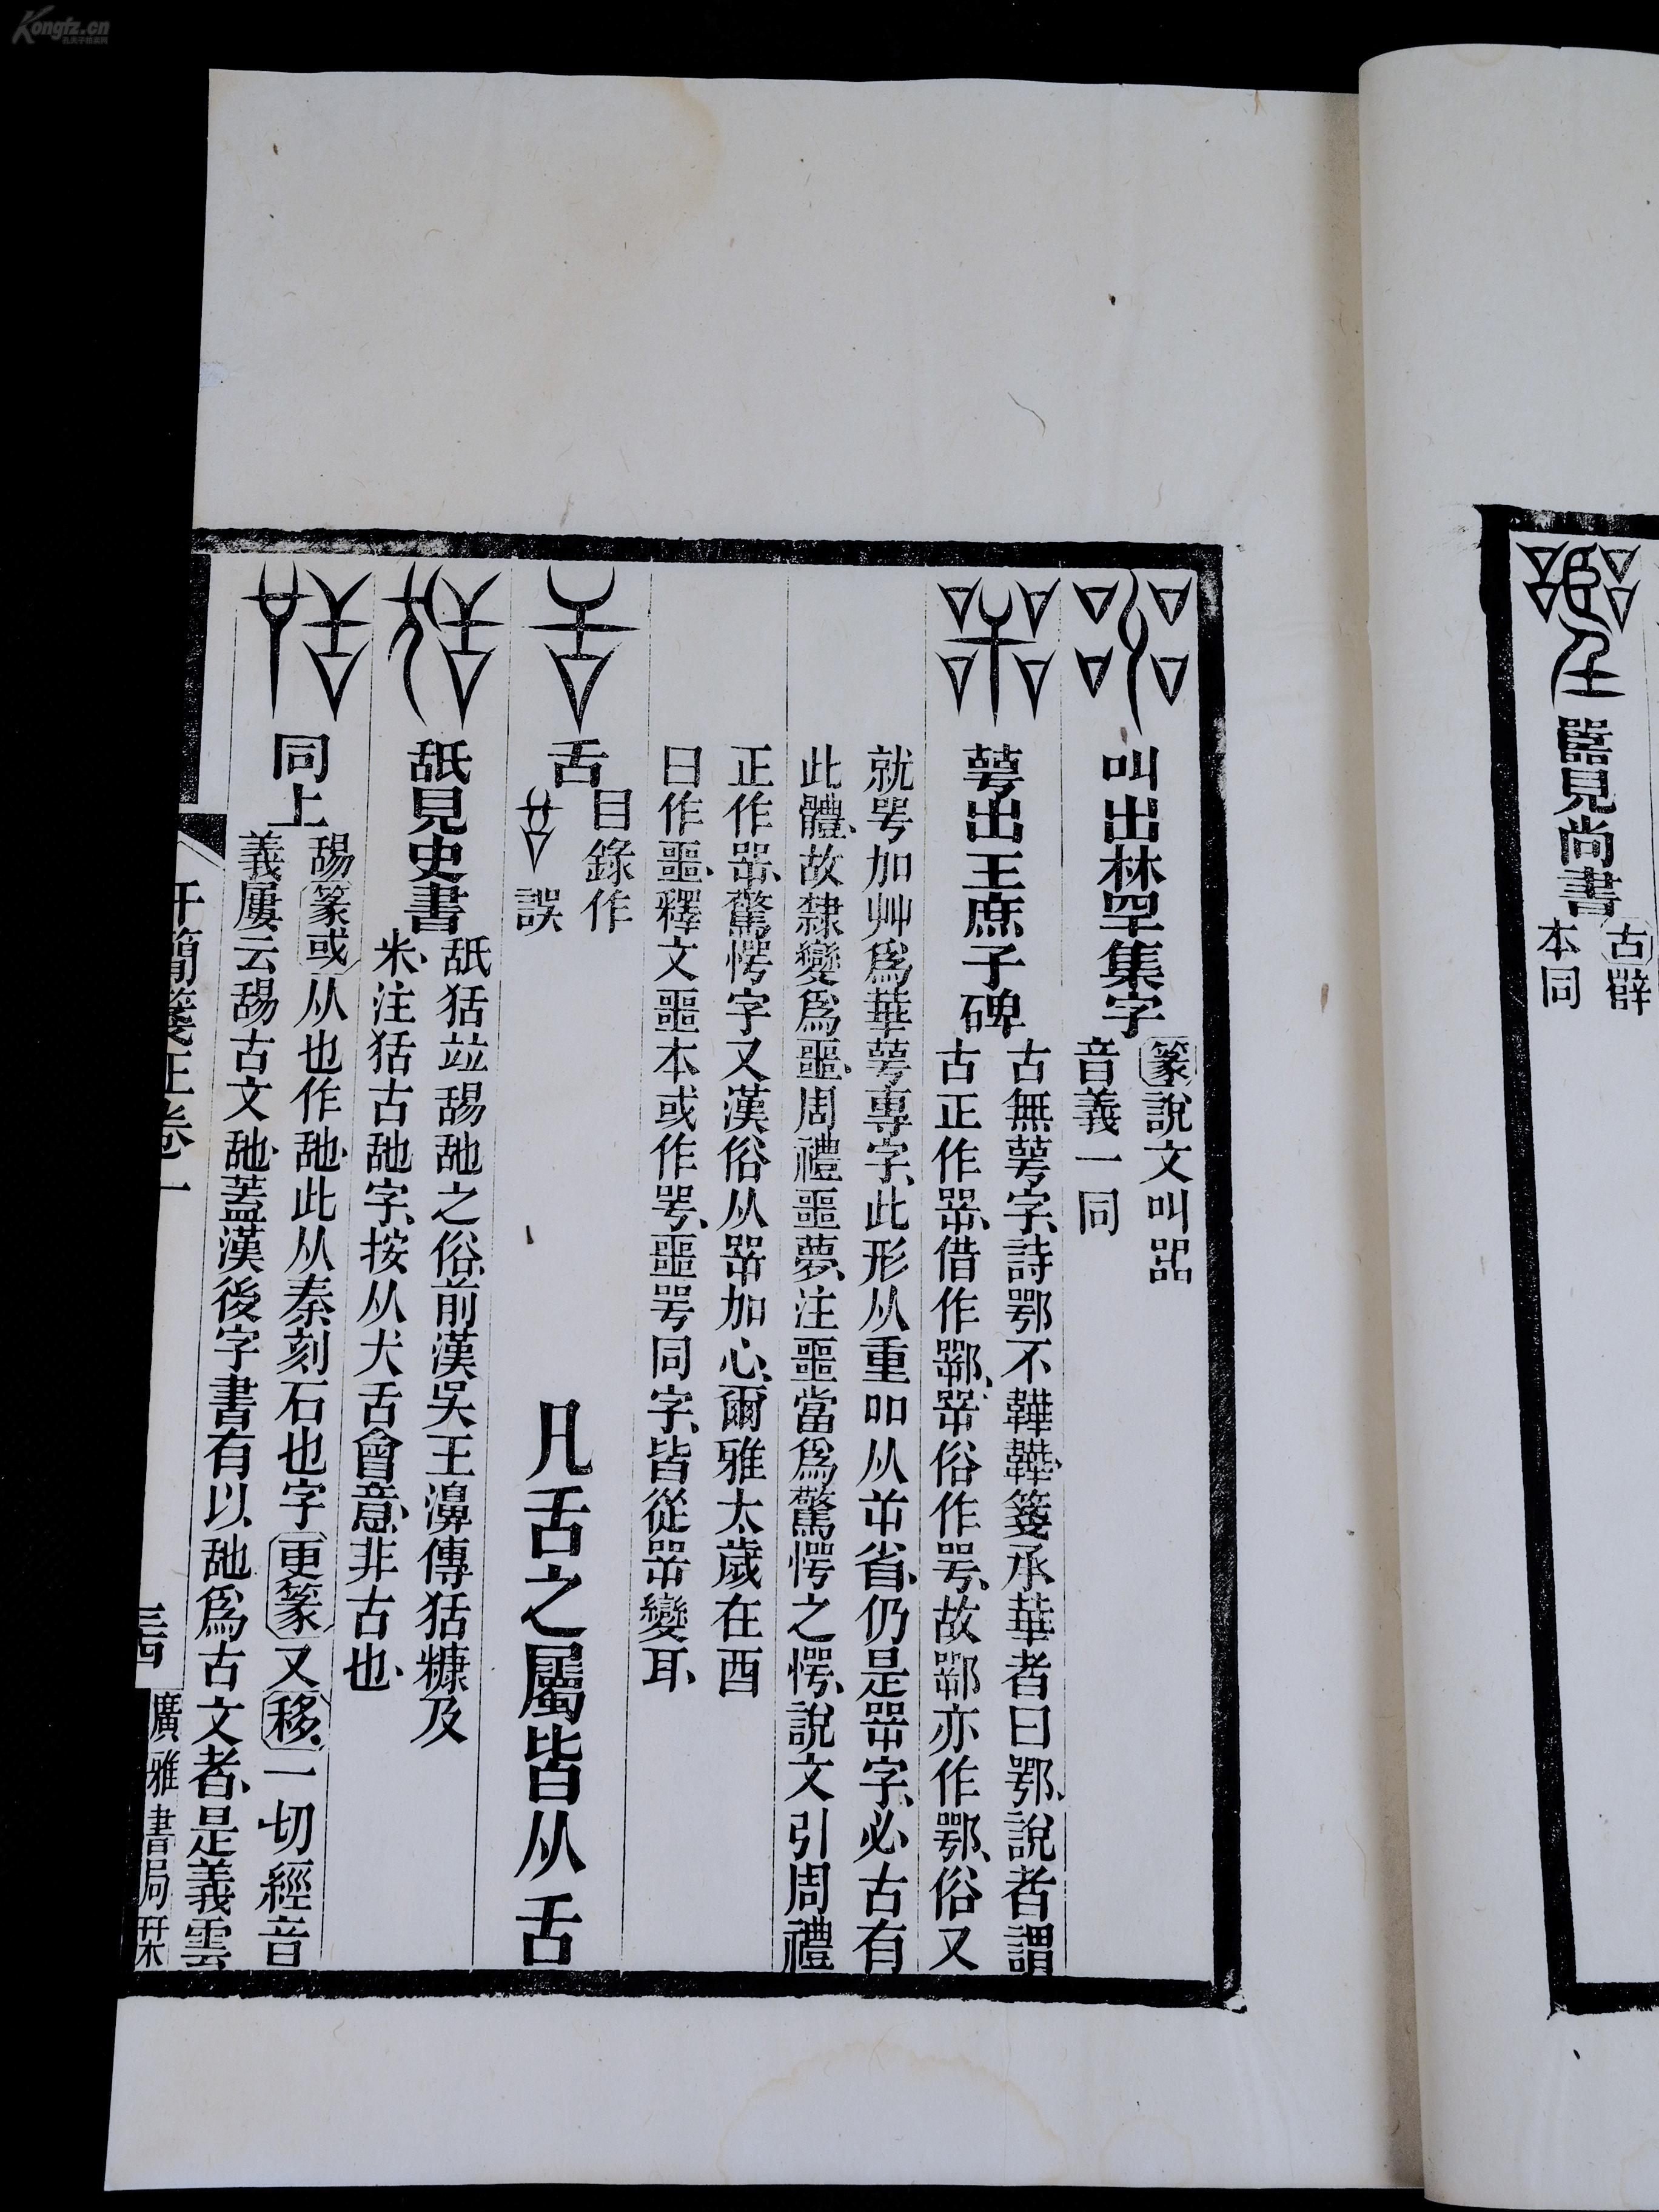 嚚見尚書
古辥
本同
叫出林罕集字
篆說文叫㗊
音義一同
萼出王庶子碑
古無萼字、詩鄂不韡韡、箋承華者曰鄂、說者謂
古正作㖾、借作鄂、㖾俗作咢、故鄂亦作鄂、俗又
就咢加艸爲華萼專字、此形从重吅从屰省、仍是㖾字、必古有
此體、故隸變爲噩、周禮噩夢、注噩當爲驚愕之愕、說文引周禮
正作㖾、驚愕字又漢俗从㖾加心、爾雅太歲在酉
曰作噩、釋文噩本或作咢、噩咢同字、皆從㖾變耳、
舌
目錄作
誤
凡舌之屬皆从舌
舐見史書
舐狧竝䑛舓之俗、前漢吳王濞傳狧糠及
米、注狧古舓字、按从犬舌會意、非古也、
同上
䑛篆或从也作舓、此从秦刻石也字更篆又移、一切經音
義屢云䑛古文舓、蓋漢後字書有以舓爲古文者、是義雲
汗簡箋正卷一
三四
廣雅書局栞
Kongfz.cn